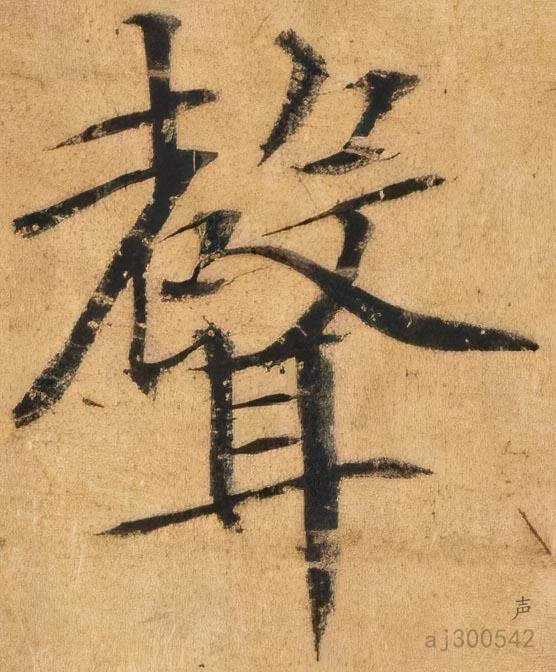 聲
声
aj300542